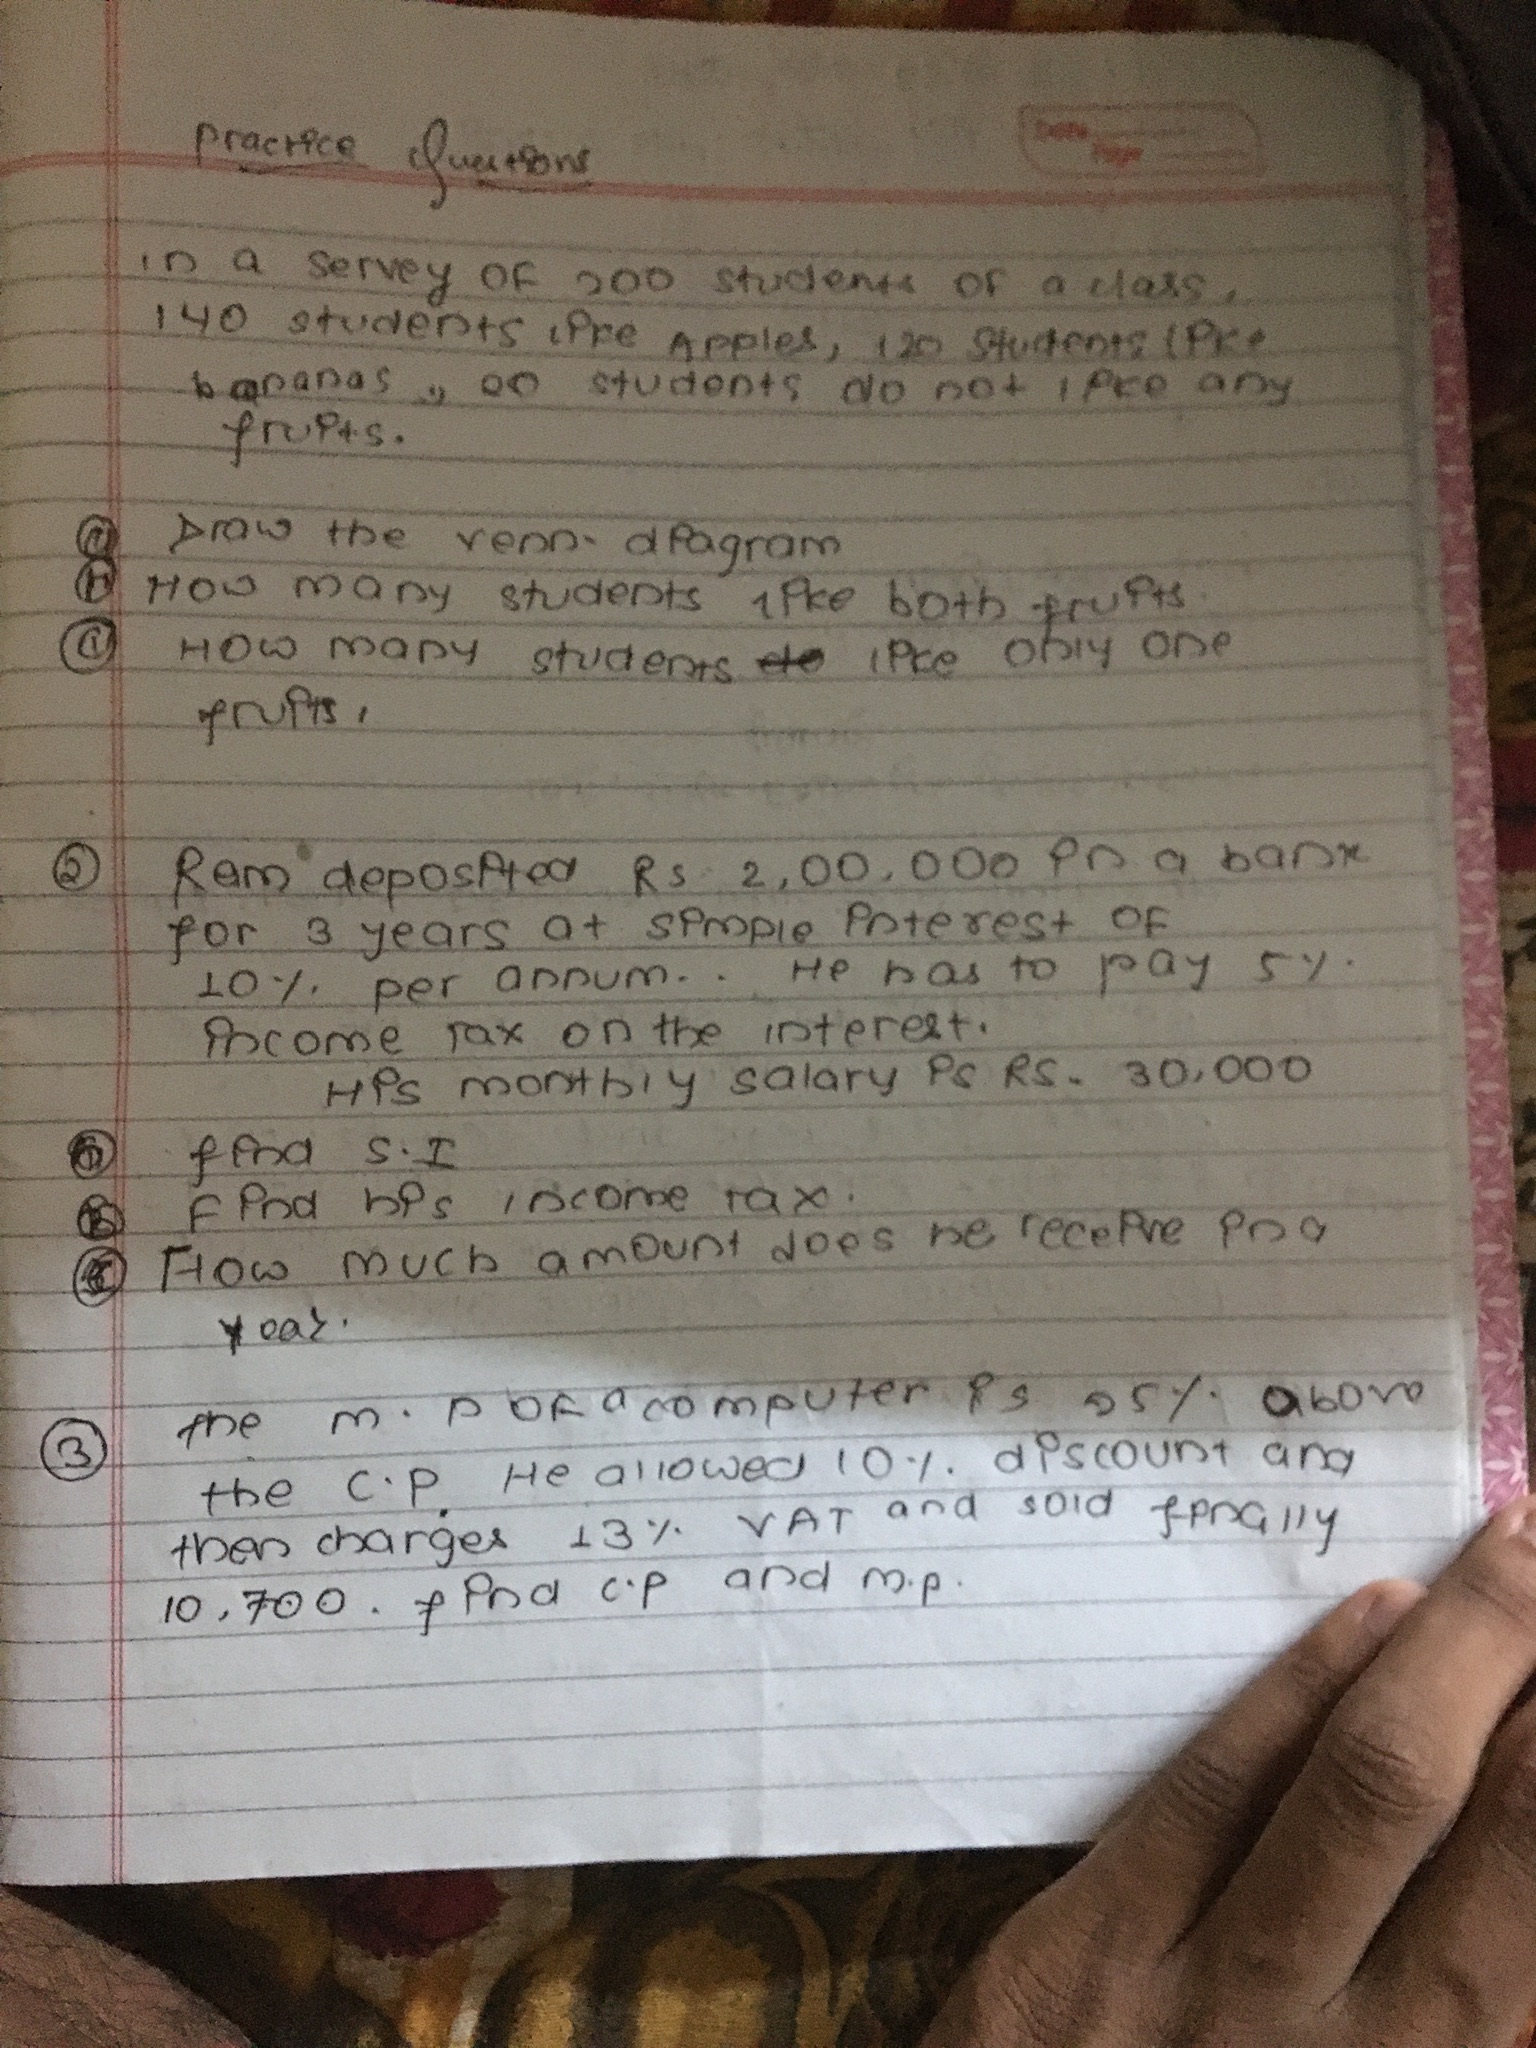 practice Questions
Date
Page
in a servey of 200 students of a class,
140 students like Apples, 120 students like
bananas, 20 students do not like any
fruits.
a Draw the venn-diagram
b How many students like both fruits.
c How many students do like only one
fruits.
2 Ram deposited Rs 2,00,000 in a bank
for 3 years at simple interest of
10% per annum.. He has to pay 5%.
income tax on the interest.
His monthly salary is RS. 30,000
find S.I
Find his income tax.
How much amount does he receive in a
year.
3 the m.p of a computer is 25% above
the C.P. He allowed 10% discount and
then charges 13% VAT and sold finally
10,700. find c.p and m.p.